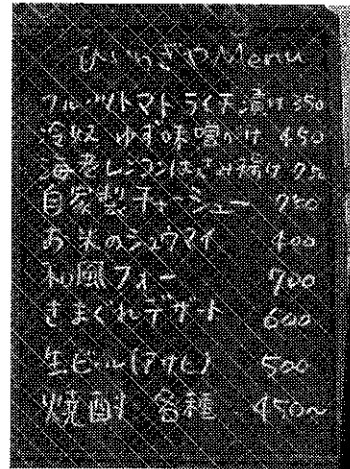 ひいらぎやMenu
フルーツトマトライス漬け 350
冷奴 ゆず味噌かけ 450
海老レンコンはさみ揚げ 750
自家製チャーシュー 750
お米のシュウマイ 400
和風フォー 700
きまぐれデザート 600
生ビール(アサヒ) 500
焼酎 各種 450~